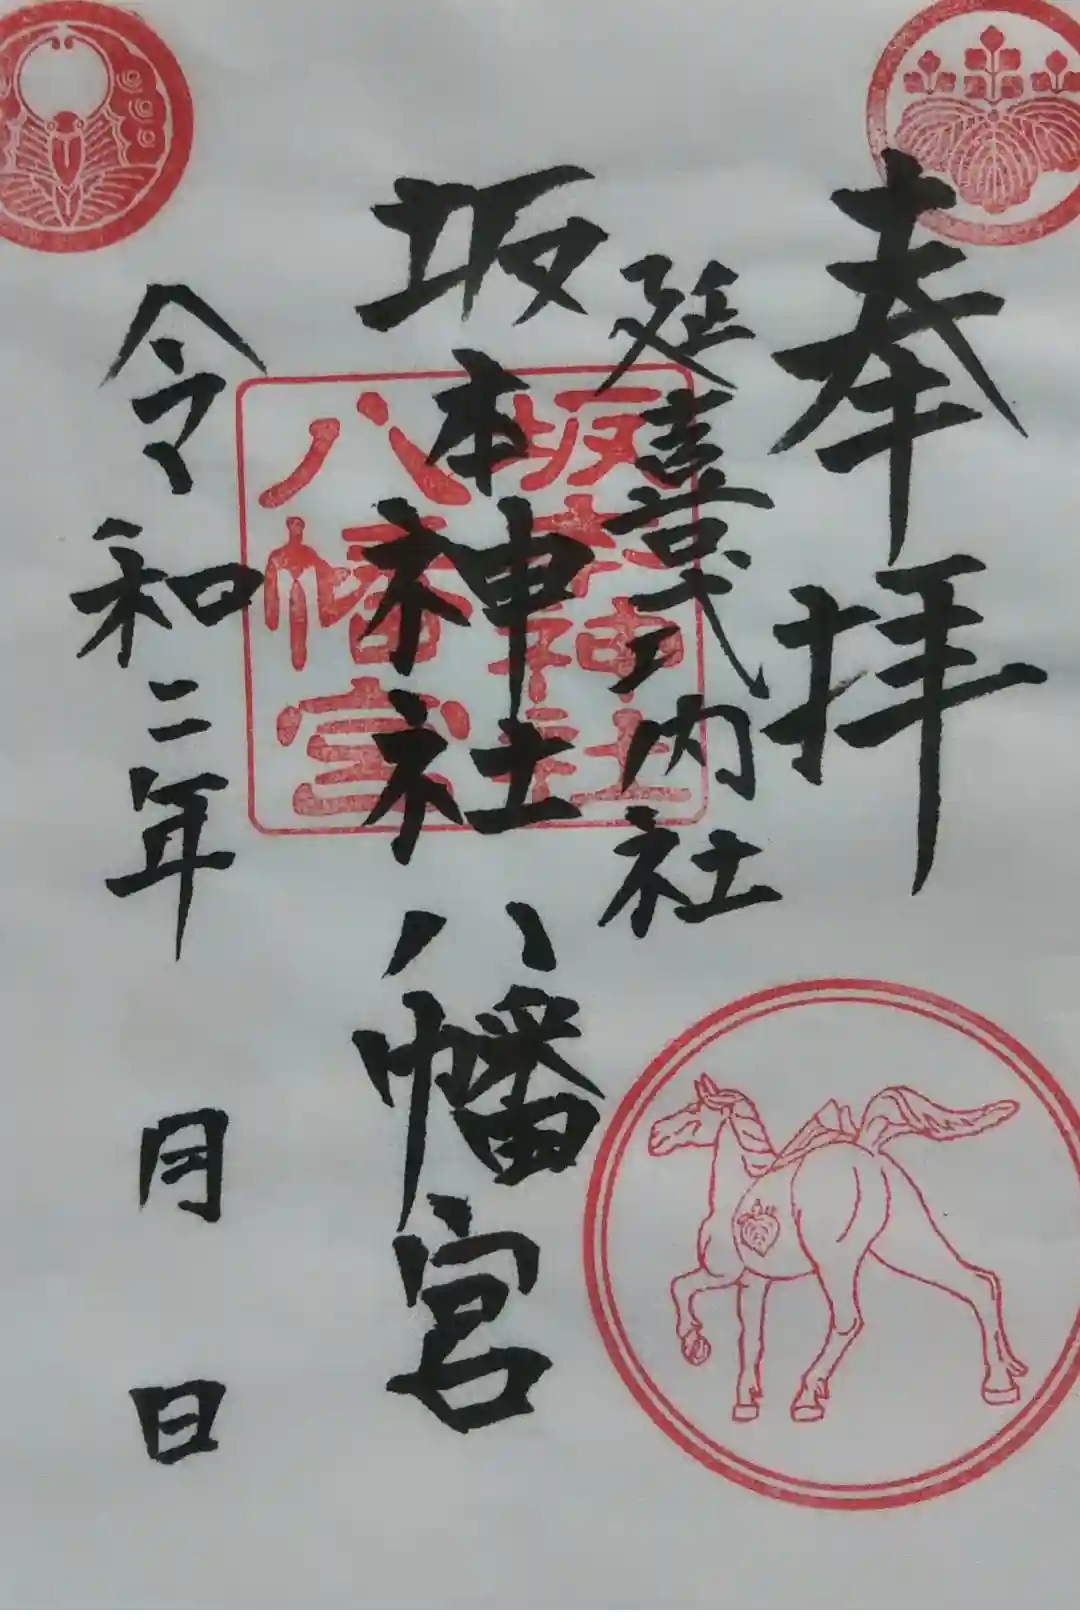 奉拝
延喜式内社
坂本神社八幡宮
坂本神社
八幡宮
令和二年 月 日